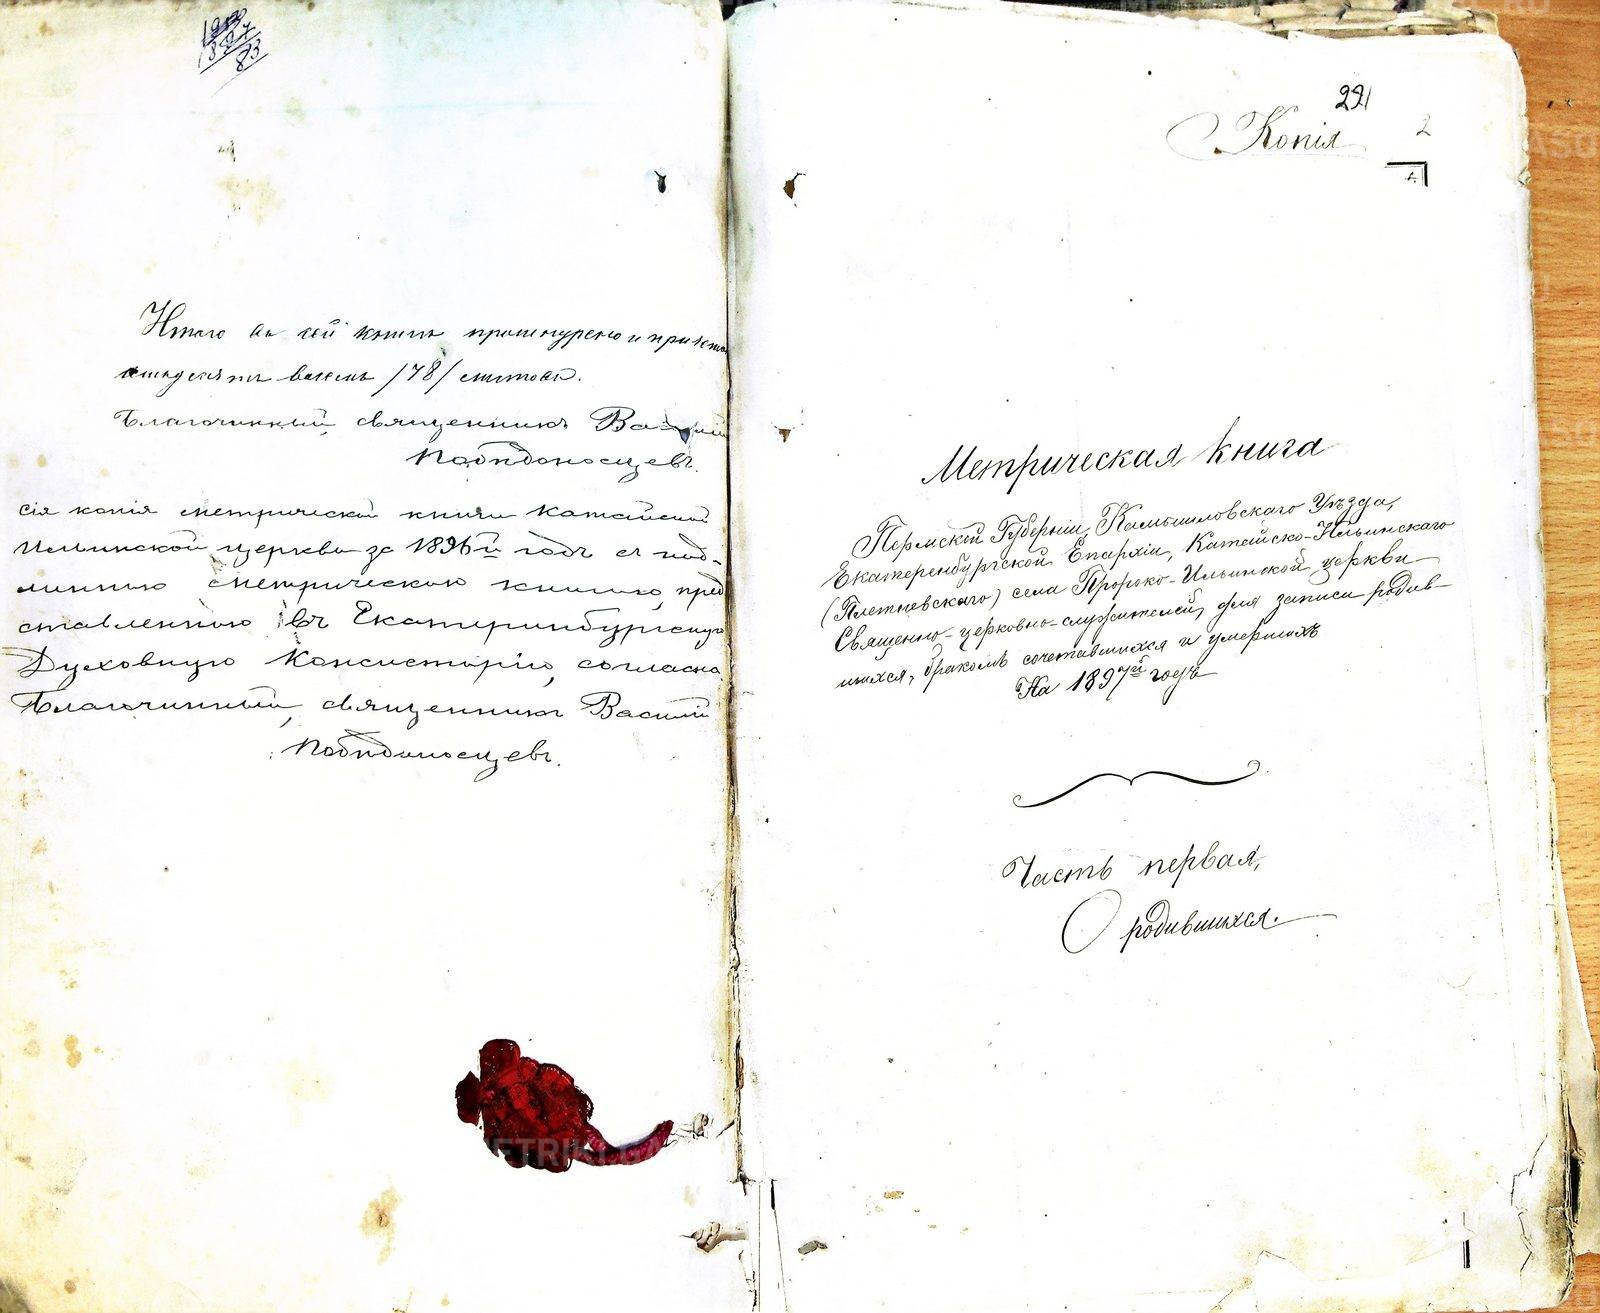 Итого въ сей книгѣ прошнуровано и
восемь /78/ листовъ.
Благочинный, священникъ Василій
Побѣдоносцевъ.
Сія копія метрической книги Катайской
Ильинской церкви за 1896й годъ съ под-
линною метрическою книгою, пред
ставленною въ Екатеринбургскую
Духовную Консисторію, согласна
Благочинный, священникъ Василій
Побѣдоносцевъ.
221
Копія
2
Метрическая книга
Пермской Губерніи, Камышловскаго Уѣзда,
Екатеренбургской Епархіи, Катайско-Ильинскаго
(Плетневскаго) села Пророко-Ильинской церкви
Священно-церковно-служителей, для записи родив-
шихся, бракомъ сочетавшихся и умершихъ
На 1897й годъ
Часть первая,
О родившихся.